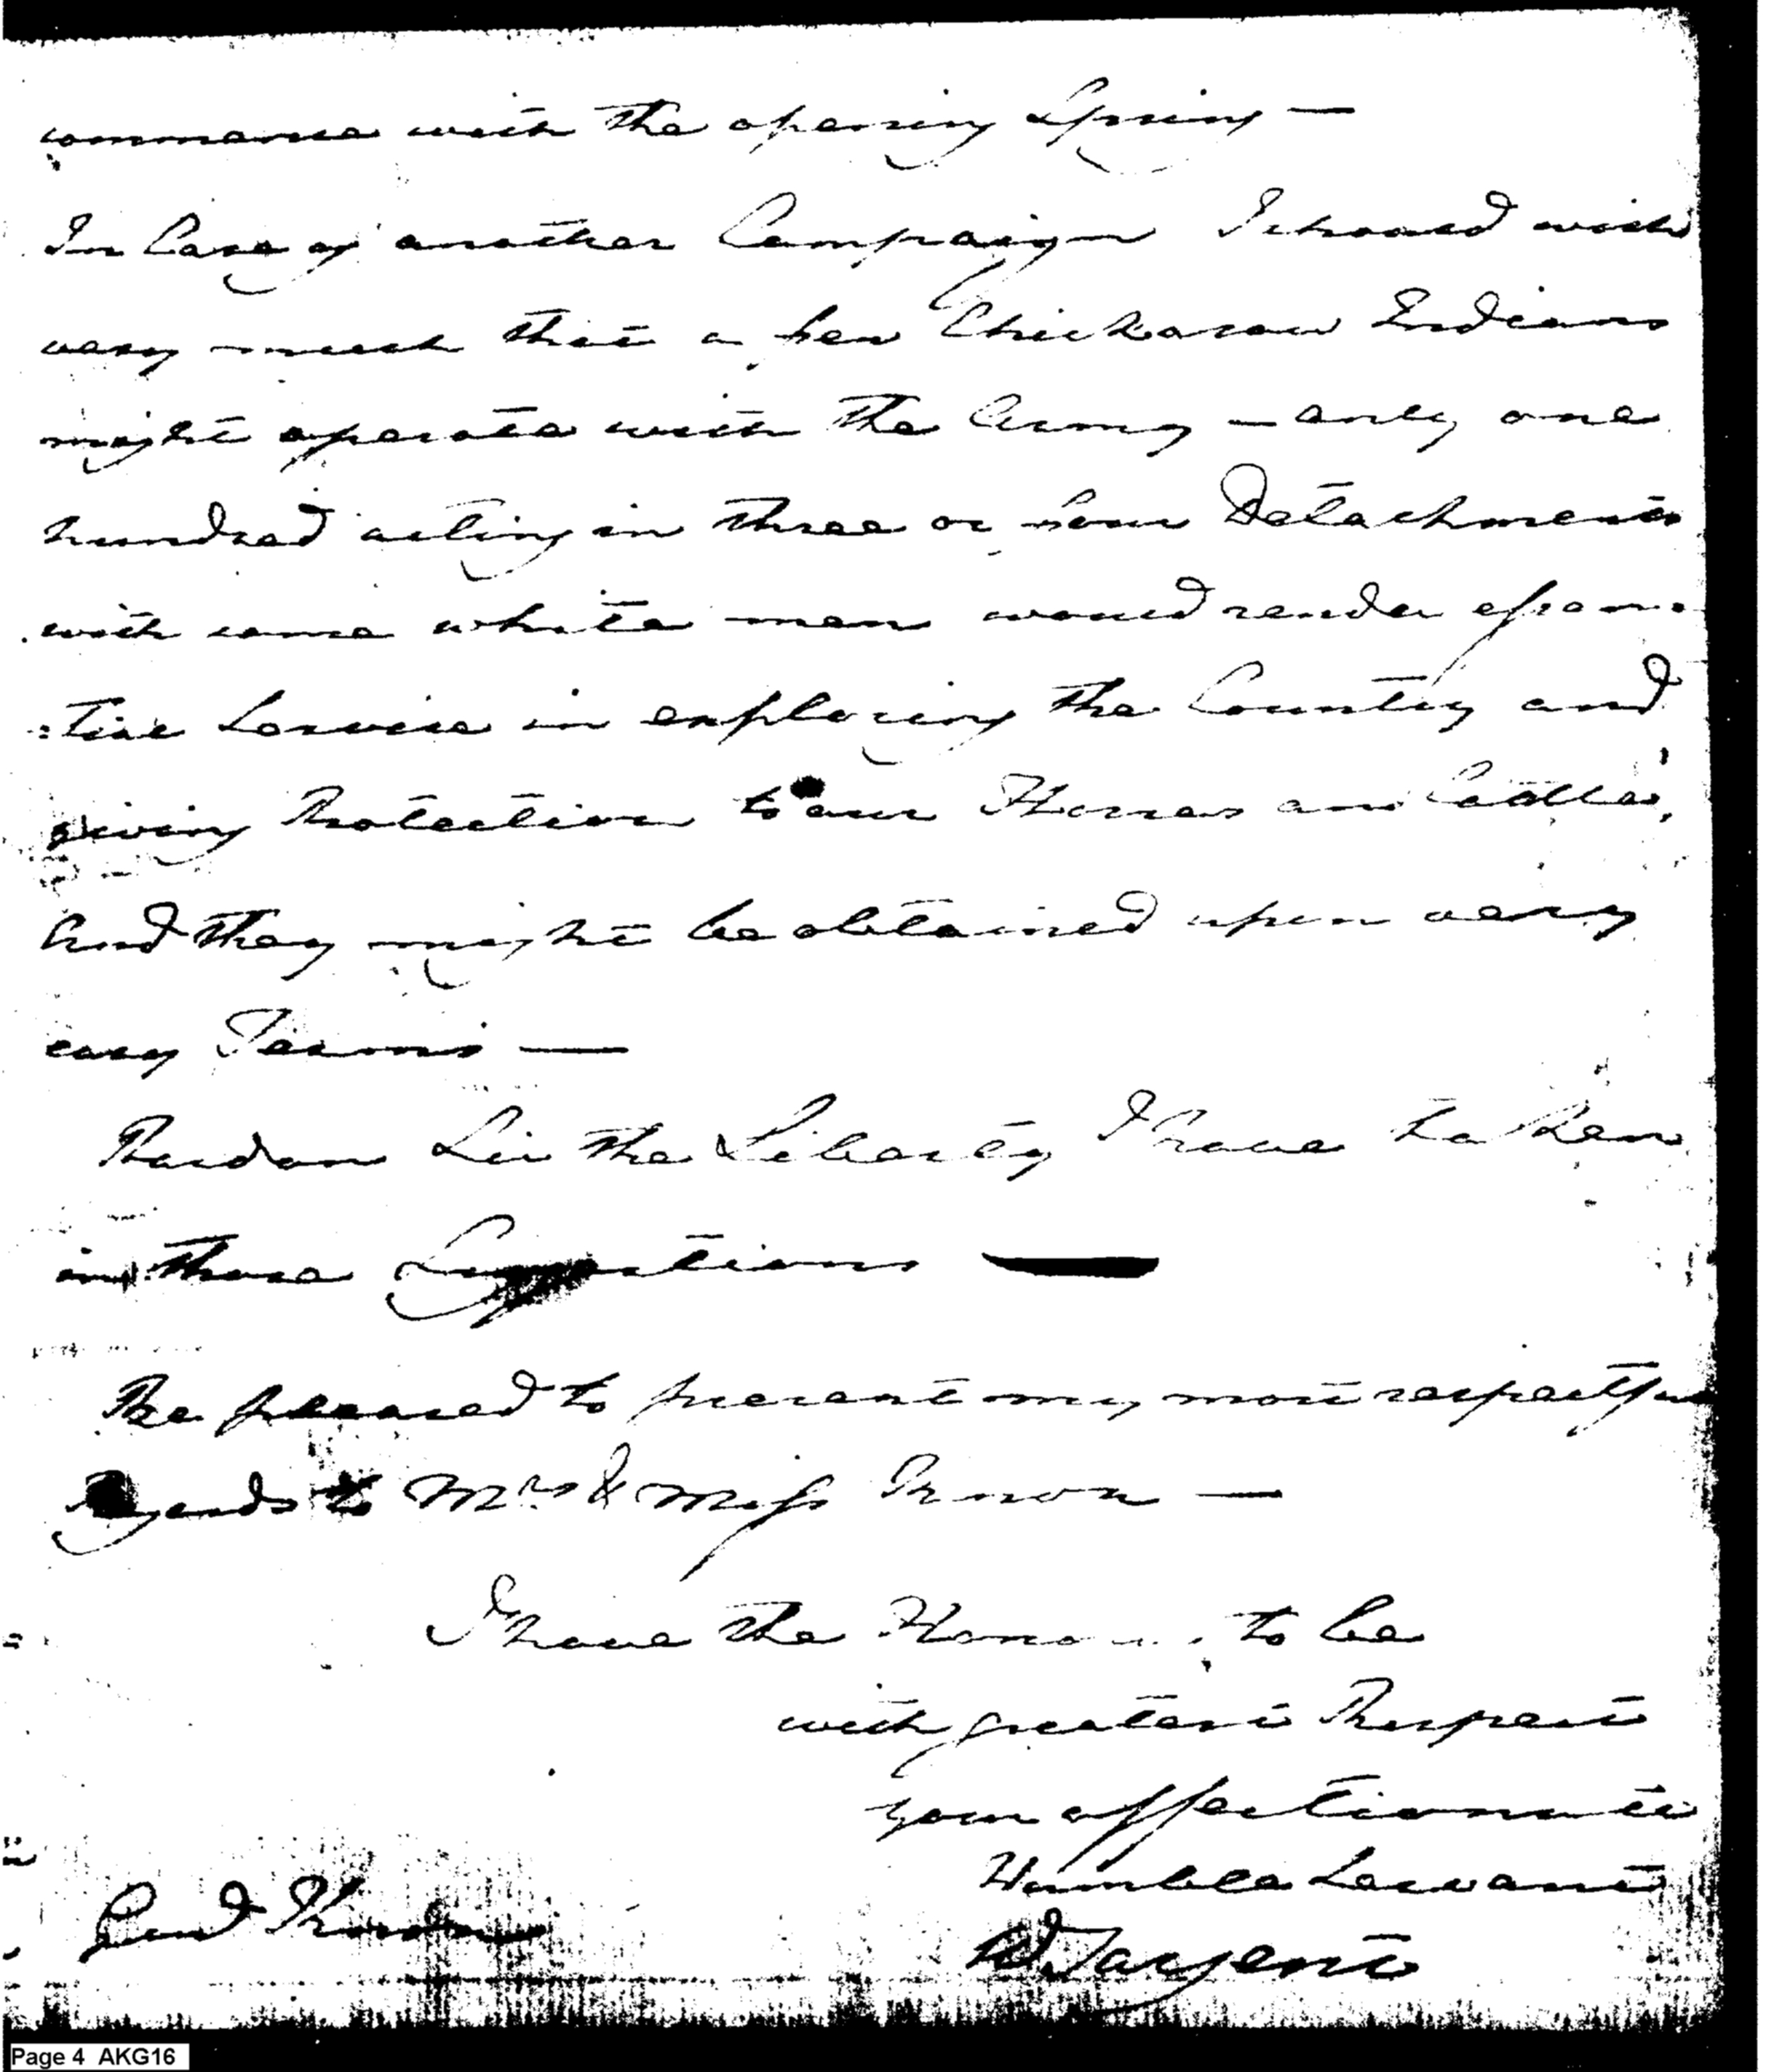 commence with the opening Spring —
In Case of another Campaign I should wish
very much that a few Chickasaw Indians
might operate with the Army — only one
hundred acting in three or four Detachments
with some white men would render essen=
=tial Service in exploring the Country and
giving Protection to our Horses and Cattle,
And they might be obtained upon very
easy Terms —
Pardon Sir the Liberty I have taken
in these Suggestions —
Be pleased to present my most respectful
regards to Mrs & Miss Knox —
I have the Honour to be
with greatest Respect
your affectionate
Humble Servant
W Sargent
Genl Knox
Page 4 AKG16